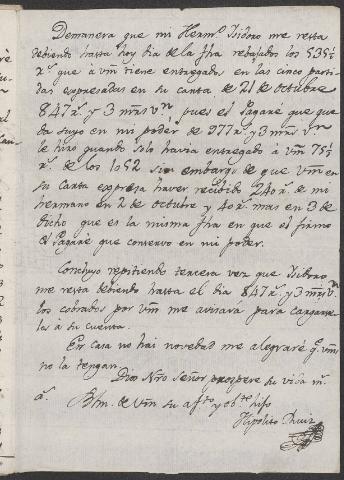 Demanera que mi Herm.º Isidoro me resta
debiendo hasta hoy dia de la fha rebajados los 535½
r.s que à vm tiene entregados en las cinco parti-
das expresadas en su carta de 21 de octubre
847 r.s y 3 mrs vn pues el Pagaré que que-
da suyo en mi poder de 977 r.s y 3 mrs vn
le hizo quando solo havia entregado à vm 75½
r.s de los 1052 sin embargo de que vm en
su carta expresa haver recibido 240 r.s de mi
hermano en 2 de octubre y 40 r.s mas en 3 de
dicho que es la misma fha en que él firmó
el Pagaré que conservo en mi poder.
Concluyo repitiendo tercera vez que Isidoro
me resta debiendo hasta el dia 847 r.s y 3 mrs vn
los cobrados por vm me avisara para cargarse-
los à su cuenta.
En casa no hai novedad me alegraré q.e vms
no la tengan.
Dios Ntro Señor prospere su vida m.s
a.s
Blm. de vm su af.to y ob.te hijo
Hipolito Ruiz